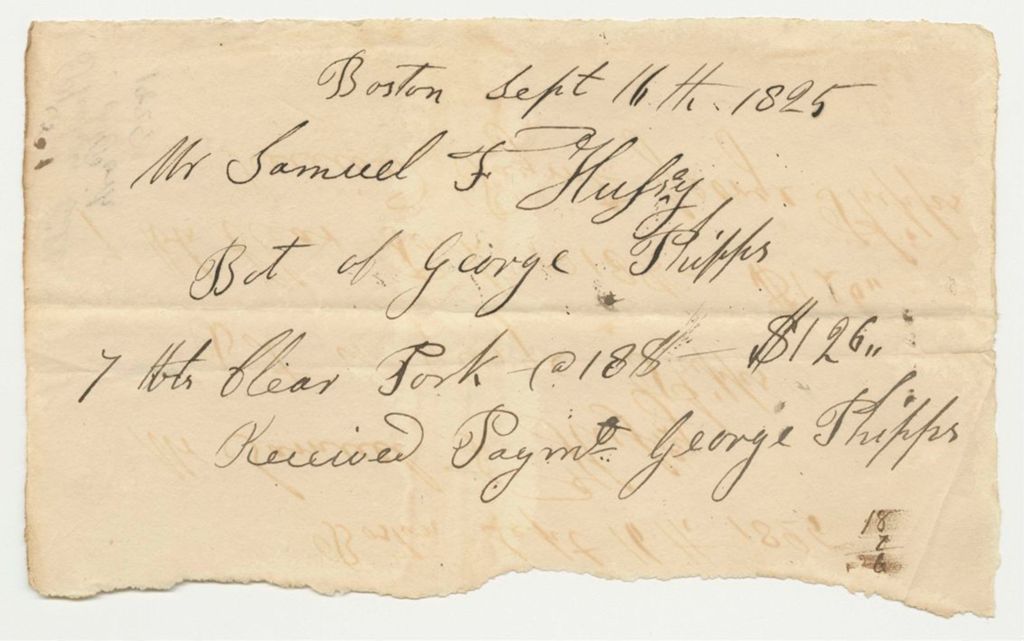 Boston Sept 16th. 1825
Mr Samuel F Hussey
Bot of George Phipps
7 bbls Clear Pork @ 18$ — $126"
Received Paymt George Phipps
18
7
126